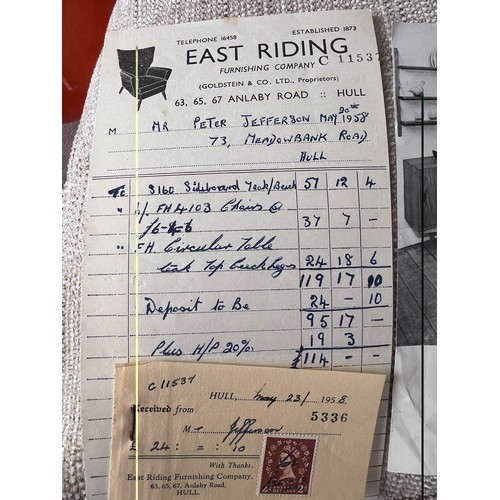 TELEPHONE 16458 ESTABLISHED 1873
EAST RIDING
FURNISHING COMPANY C 11537
(GOLDSTEIN & CO. LTD., Proprietors)
63, 65, 67 ANLABY ROAD :: HULL
M MR PETER JEFFERSON MAY 20th 1958
73, MEADOWBANK ROAD
HULL
To S160 Sideboard Teak/Beech 57 12 4
" 4/ FH 4103 Chairs @
37 7 -
" FH Circular Table
teak Top Beech legs 24 18 6
119 17 10
Deposit to Be 24 - 10
95 17 -
Plus H/P 20% 19 3
£ 114 -
C 11537
HULL, May 23/ 1958
5336
Received from
Mr Jefferson
£ 24 : = : 10
With Thanks.
East Riding Furnishing Company,
63, 65, 67, Anlaby Road,
HULL.